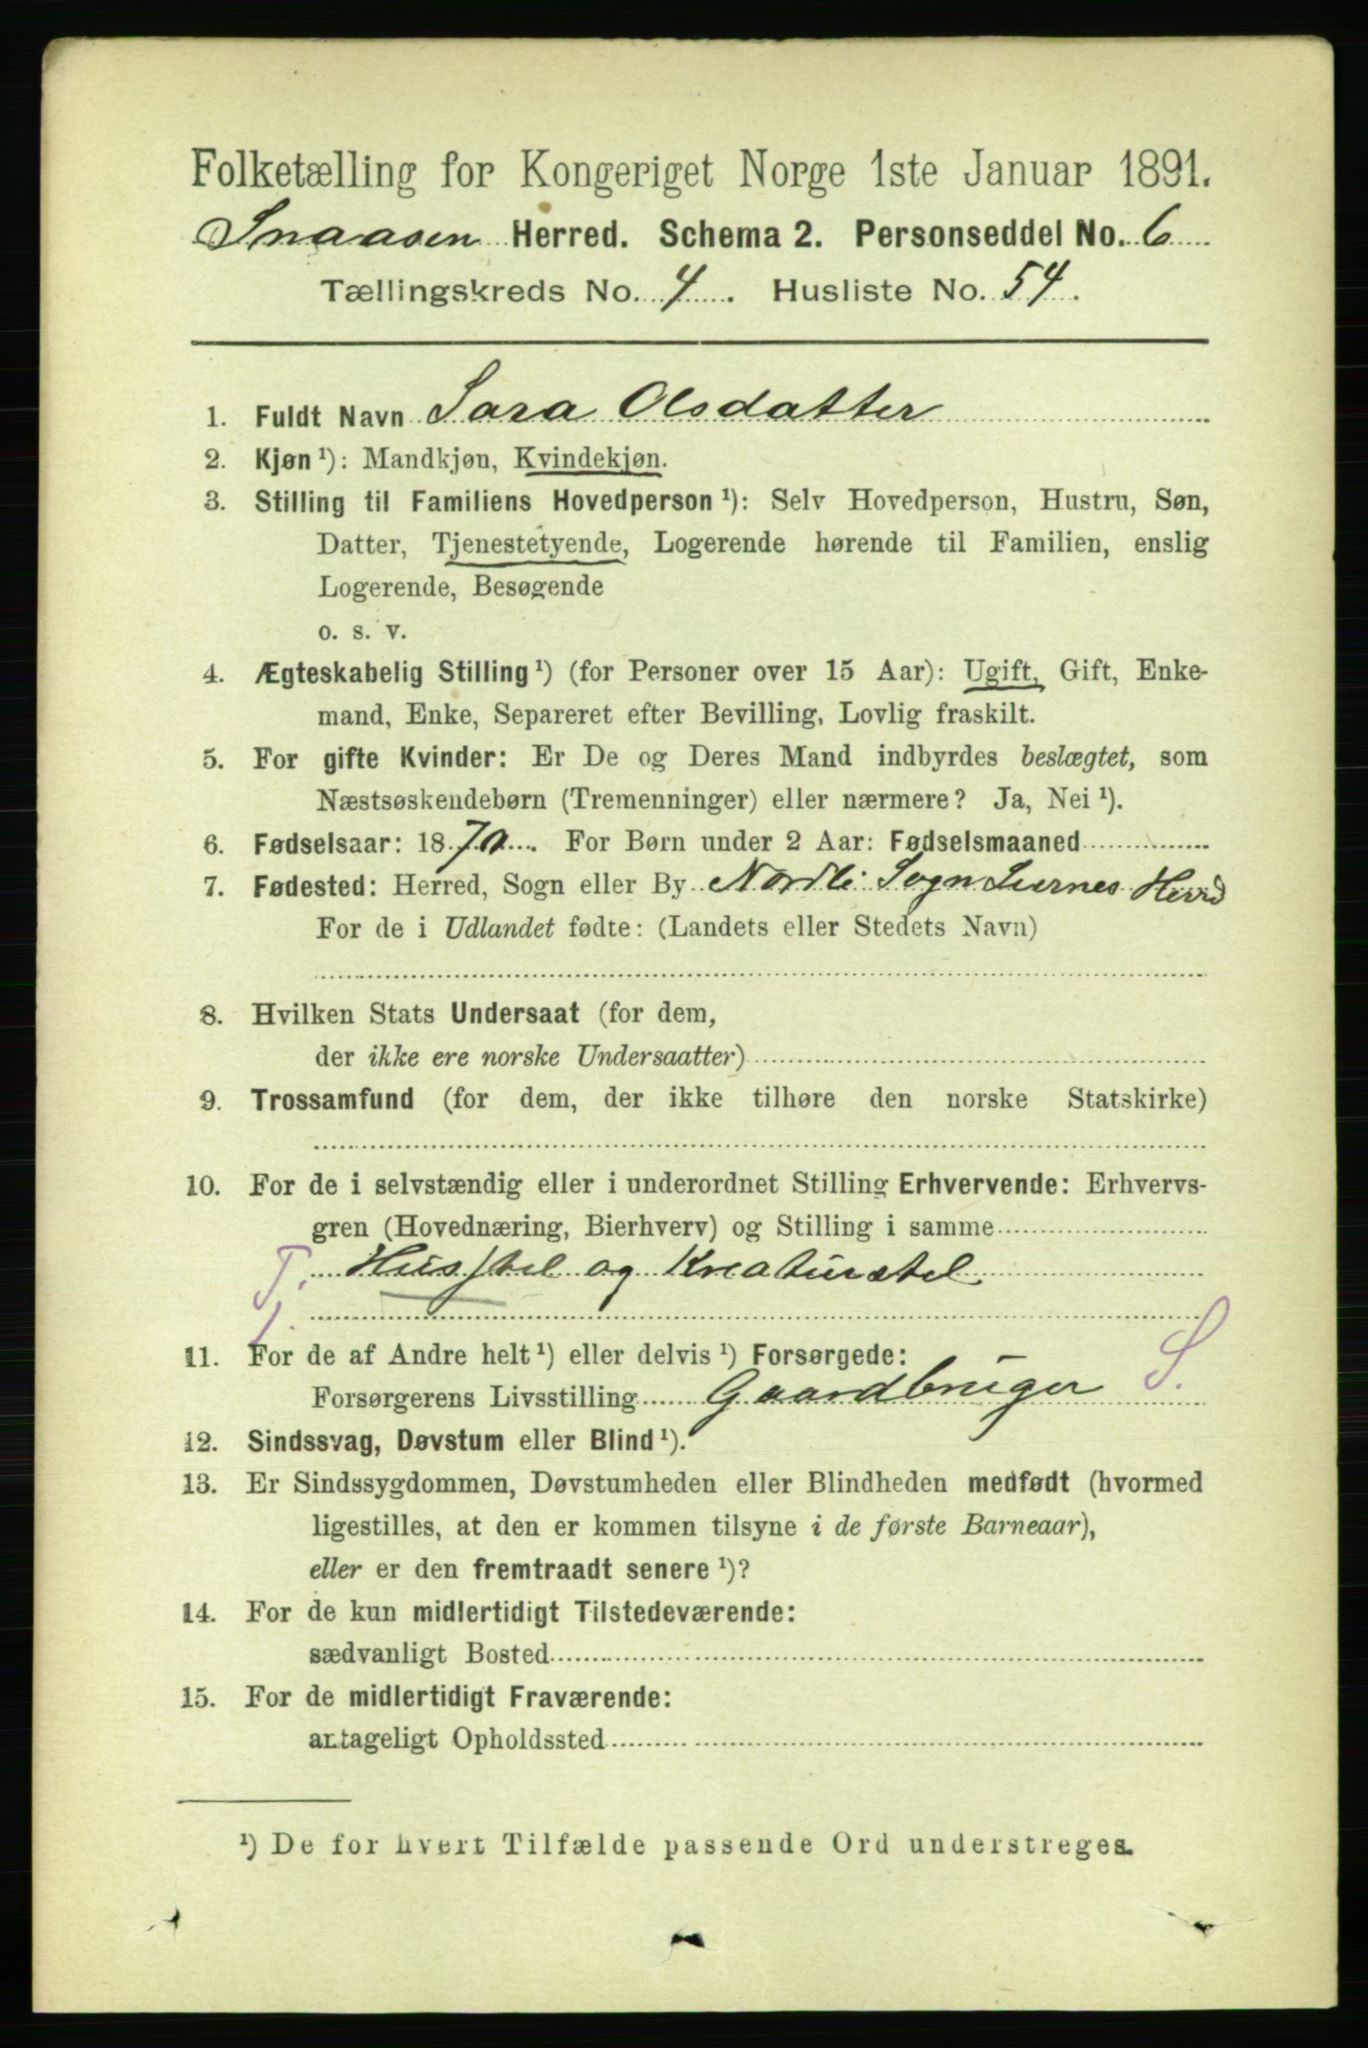 Folketælling for Kongeriget Norge 1ste Januar 1891.
Snaasen Herred. Schema 2. Personseddel No. 6
Tællingskreds No. 4. Husliste No. 54.
1. Fuldt Navn Sara Olsdatter
2. Kjøn ¹): Mandkjøn, Kvindekjøn.
3. Stilling til Familiens Hovedperson ¹): Selv Hovedperson, Hustru, Søn,
Datter, Tjenestetyende, Logerende hørende til Familien, enslig
Logerende, Besøgende
o. s. v.
4. Ægteskabelig Stilling ¹) (for Personer over 15 Aar): Ugift, Gift, Enke-
mand, Enke, Separeret efter Bevilling, Lovlig fraskilt.
5. For gifte Kvinder: Er De og Deres Mand indbyrdes beslægtet, som
Næstsøskendebørn (Tremenninger) eller nærmere? Ja, Nei ¹).
6. Fødselsaar: 1870. For Børn under 2 Aar: Fødselsmaaned
7. Fødested: Herred, Sogn eller By Nordli Sogn Liernes Herrd
For de i Udlandet fødte: (Landets eller Stedets Navn)
8. Hvilken Stats Undersaat (for dem,
der ikke ere norske Undersaatter)
9. Trossamfund (for dem, der ikke tilhøre den norske Statskirke)
10. For de i selvstændig eller i underordnet Stilling Erhvervende: Erhvervs-
gren (Hovednæring, Bierhverv) og Stilling i samme
T. Husstel og Kreaturstel
j.
11. For de af Andre helt ¹) eller delvis ¹) Forsørgede:
Forsørgerens Livsstilling Gaardbruger S.
12. Sindssvag, Døvstum eller Blind ¹).
13. Er Sindssygdommen, Døvstumheden eller Blindheden medfødt (hvormed
ligestilles, at den er kommen tilsyne i de første Barneaar),
eller er den fremtraadt senere ¹)?
14. For de kun midlertidigt Tilstedeværende:
sædvanligt Bosted
15. For de midlertidigt Fraværende:
antageligt Opholdssted
¹) De for hvert Tilfælde passende Ord understreges.